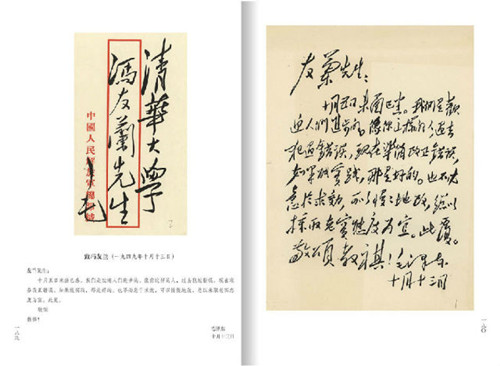 清華大學
馮友蘭先生
毛
中國人民
致冯友兰（一九四九年十月十三日）
友兰先生：
十月五日来函已悉。我们是欢迎人们进步的。像你这样的人，过去犯过错误，现在准
备改正错误，如果能实践，那是好的。也不必急于求效，可以慢慢地改，总以采取老实态
度为宜。此复。
敬颂
教祺！
毛泽东
十月十三日
友蘭先生：
十月五日来函已悉。我們是歡
迎人們進步的。像你這樣的人，過去
犯過錯誤，現在準備改正錯誤，
如果能實踐，那是好的。也不必
急於求効，可以慢慢地改，總以
採取老實態度為宜。此復。
敬頌教祺！毛澤東
十月十三日